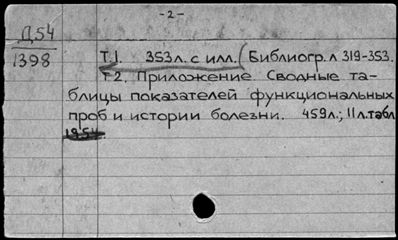 -2-
Д54
1398
Т.1. 353л. с илл. (Библиогр. л 319-353.
Т2. Приложение. Сводные та-
блицы показателей функциональных
проб и истории болезни. 459л.; 11л.табл
1954.